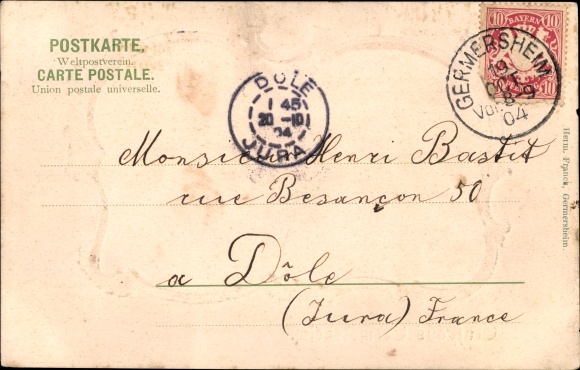 POSTKARTE,
Weltpostverein.
CARTE POSTALE.
Union postale universelle.
10 BAYERN 10
10 10
GERMERSHEIM
Vor.
04
DÔLE
1 45
20 -10
04
JURA
Monsieur Henri Bastit
rue Besançon 50
a Dôle
(Jura) France
Herm. Franck, Germersheim.